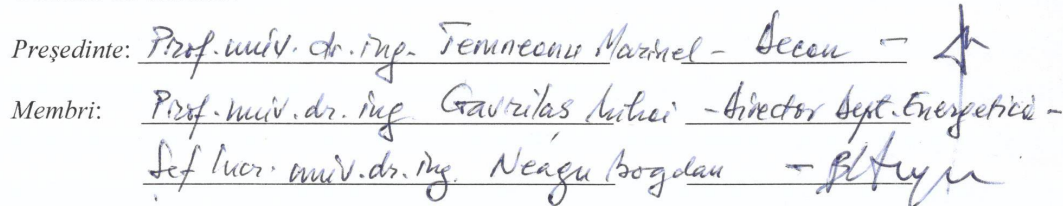 Președinte: Prof. univ. dr. ing. Temneanu Marinel - Decan -
Membri: Prof. univ. dr. ing Gavrilas Mihai - Director Dept. Energetică -
Sef lucr. univ. dr. ing. Neagu Bogdan -